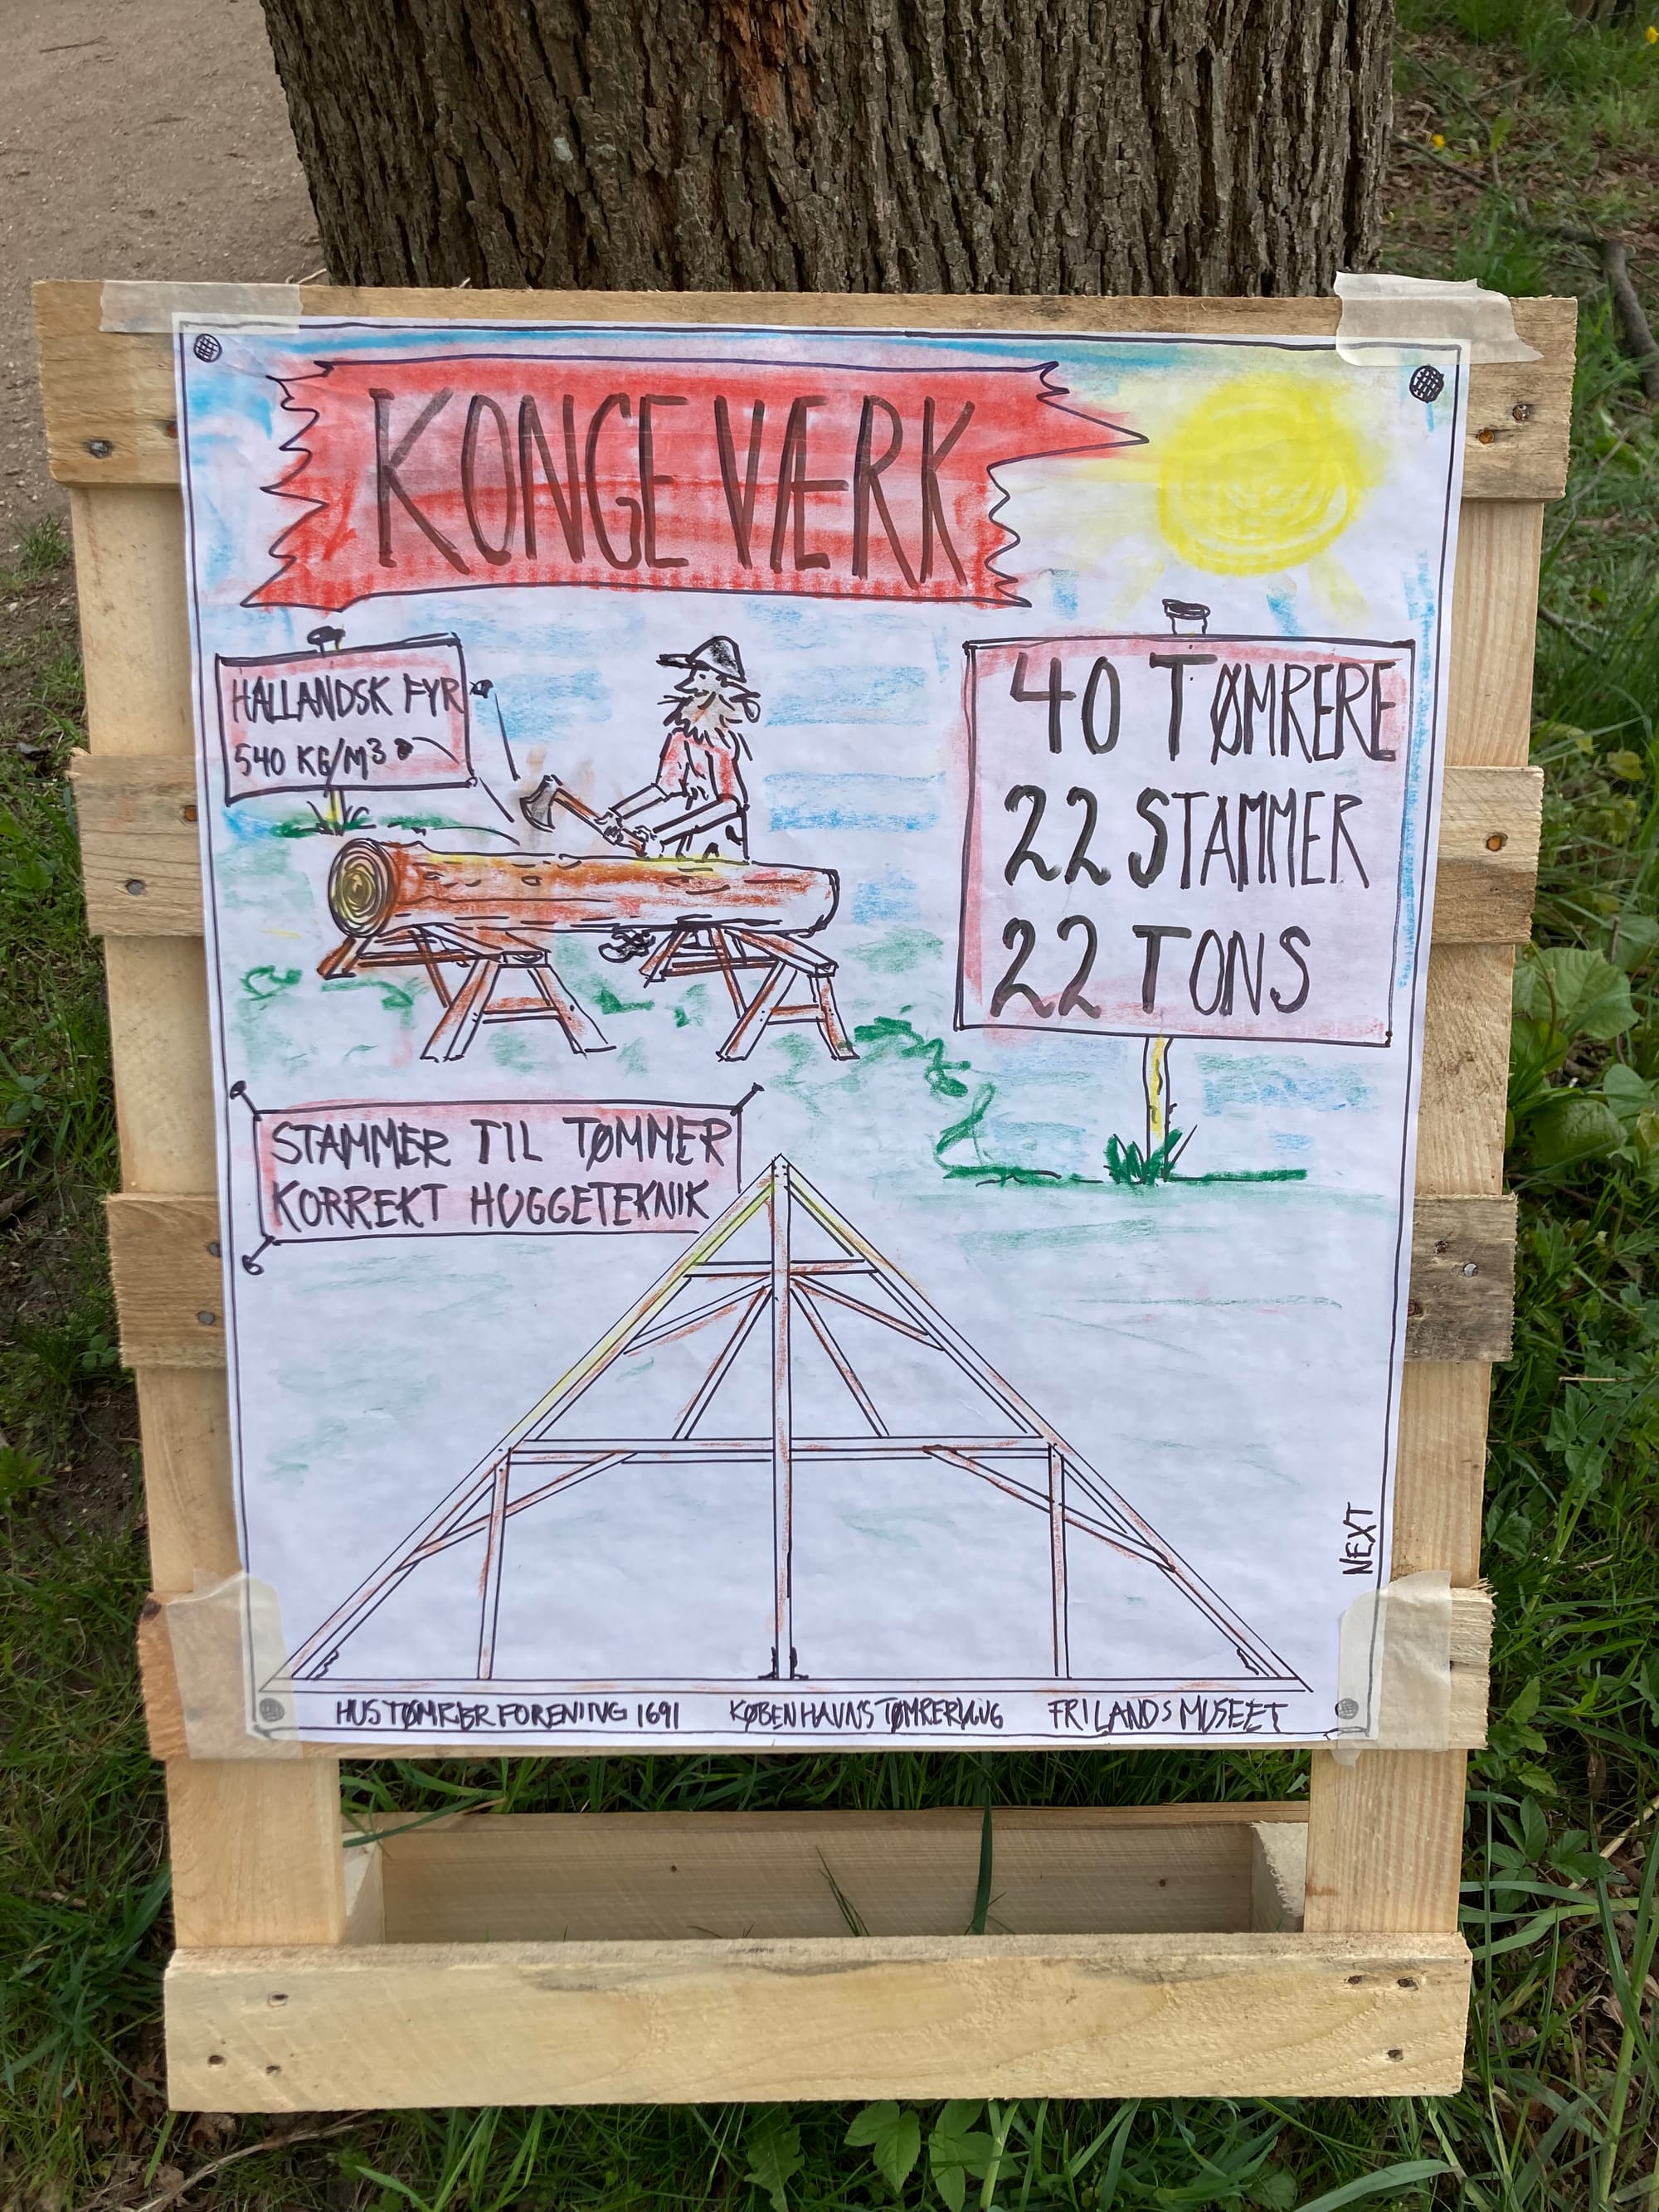 KONGEVÆRK
HALLANDSK FYR
540 KG/M³
40 TØMRERE
22 STAMMER
22 TONS
STAMMER TIL TØMMER
KORREKT HUGGETEKNIK
NEXT
HUSTØMRERFORENING 1691 KØBENHAVNS TØMRERLAUG FRILANDSMUSEET